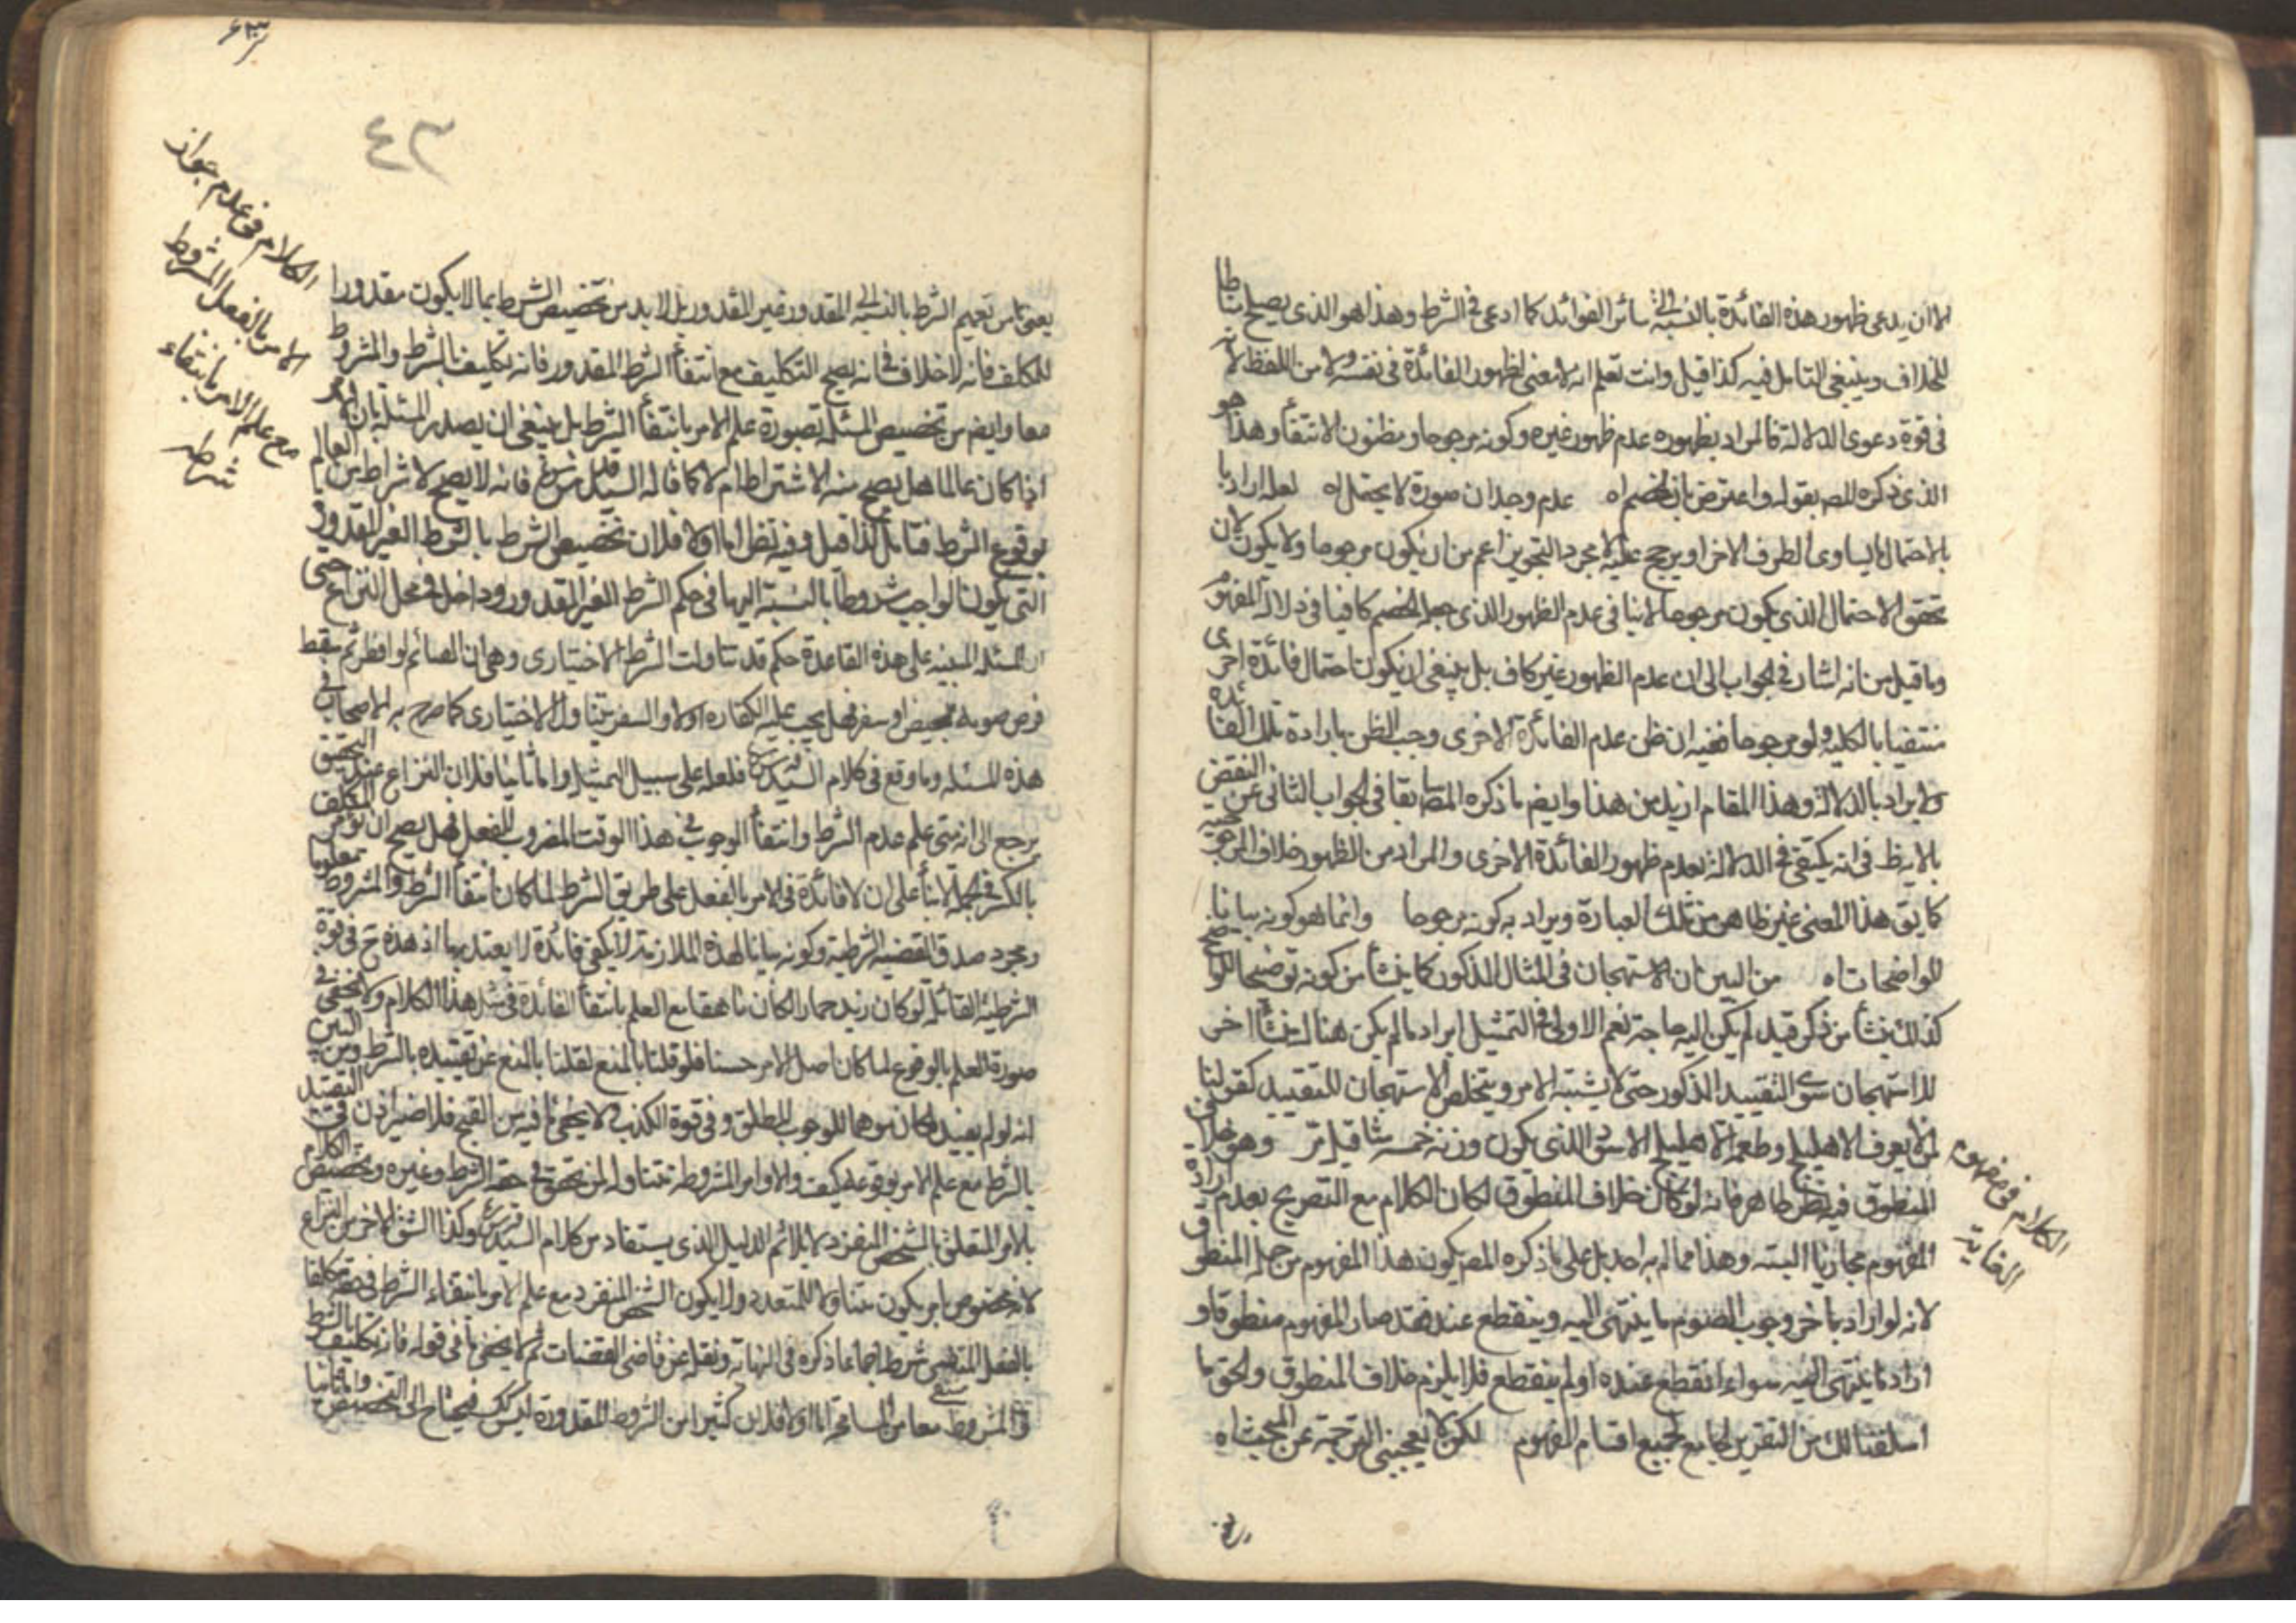 الا ان يدعى ظهور هذه الفائدة بالنسبة الى سائر الفوائد كما ادعى فى الشرط وهذا هو الذى يصلح مناطا
للخلاف وينبغى التامل فيه كذا قيل وانت تعلم انه لا معنى لظهور الفائدة فى نفسه ولا من اللفظ لانه
فى قوة دعوى الدلالة فالمراد بظهوره عدم ظهور غيره وكونه مرجوحا ومظنون الانتفاء وهذا هو
الذى ذكره المصـ بقوله واعترض بان الخصم اه عدم وجدان صورة لا يحتمل اه لعله اراد با
بالاحتمال ما يساوى الطرف الاخر او يرجح عليه لا مجرد التجويز اعم من ان يكون مرجوحا ولا يكون لان
تحقق الاحتمال الذى يكون مرجوحا لا ينافى عدم الظهور الذى جعله الخصم كافيا فى دلالة المفهوم
وما قيل من انه اشار فى الجواب الى ان عدم الظهور غير كاف بل ينبغى ان يكون احتمال فائدة اخرى
منتفيا بالكلية ولو مرجوحا ففيه ان ظن عدم الفائدة الاخرى وجب الظن بارادة تلك الفائدة
ولا يراد بالدلالة وهذا المقام ازيد من هذا وايضـ ما ذكره المصـ سابقا فى الجواب الثانى عن النقض
فى انه يكتفى فى الدلالة بعدم ظهور الفائدة الاخرى والمراد من الظهور خلاف المرجوحية
كما يقـ هذا المعنى غير ظاهر من تلك العبارة ويراد به كونه مرجوحا وانما هو كونه بيانا
للواضحات اه من البين ان الاستهجان فى المثال المذكور كما ينشأ من كونه توضيحا للواضح
كذلك ينشأ من ذكر قيد لم يكن اليه حاجة نعم الاولى فى التمثيل ايراد ما لم يكن هناك منشأ اخر
للاستهجان سوى التقييد المذكور حتى لا يشتبه الامر ويتخلص الاستهجان للتقييد كقولنا
لمن لا يعرف الاهليلج وطعمه الاهليلج الاسود الذى يكون وزنه خمسة مثاقيل مر وهو خلاف
المنطوق فيه نظر ظاهر فانه لو كان خلاف المنطوق لكان الكلام مع التصريح بعدم ارادة
المفهوم مجازيا البتة وهذا مما لم يراحد بل على ما ذكره المصـ يكون هذا المفهوم من جملة المنطوق
لانه لو اراد باخر وجوب الصوم ما ينتهى اليه وينقطع عنده فقد صار المفهوم منطوقا ولو
اراد ما ينتهى اليه سواء انقطع عنده او لم ينقطع فلا يلزم خلاف المنطوق والحق ما
اسلفنا لك من التقرير الجامع لجميع اقسام المفهوم لكن لا يعجبنى الترجمة عن المبحث اه
الكلام فى مفهوم
الغاية
٤٣
الكلام فى عدم جواز
الامر بالفعل المشروط
مع علم الامر بانتفاء
شرطه
تعميم الشرط بالنسبة الى المقدور وغير المقدور بل لا بد من تخصيص الشرط بما لا يكون مقدورا
للمكلف فانه لا خلاف فى انه يصح التكليف مع انتفاء الشرط المقدور فانه تكليف بالشرط والمشروط
معا وايضـ من تخصيص المسئلة بصورة علم الامر بانتفاء الشرط بل ينبغى ان يصدر المسئلة بان الامر
اذا كان عالما هل يصح منه الاشتراط ام لا كما قاله السيد فانه لا يصح الاشتراط من العالم
بوقوع الشرط فتامل كذا قيل وفيه نظر اما اولا فلان تخصيص الشرط بالشرط الغير المقدور
التى يكون الواجب مشروطا بالنسبة اليها فى حكم الشرط الغير المقدور وداخل فى محل النزاع حتى
ان المسئلة المبنية على هذه القاعدة حكم قد تناولت الشرط الاختيارى وهى ان الصائم لو افطر ثم سقط
فرض صومه لحيض او سفر فهل يجب عليه الكفارة او لا والسفر يتناول الاختيارى كما صرح به الاصحاب فى
هذه المسئلة وما وقع فى كلام السيد فلعله على سبيل التمثيل واما ثانيا فلان النزاع عند التحقيق
يرجع الى انه متى علم عدم الشرط وانتفاء الوجوب فى هذا الوقت المضروب للفعل فهل يصح ان يؤمر المكلف
على ان لا فائدة فى الامر بالفعل على طريق الشرط لما كان انتفاء الشرط والمشروط معلوما
ومجرد صدق القضية الشرطية وكونه بيانا لهذه الملازمة لا يكفى فائدة يعتد بها اذ هذه ح فى قوة
الشرطية القائلة لو كان زيد حمارا لكان ناهقا مع العلم بانتفاء الفائدة فى مثل هذا الكلام ولا يخفى فى
صورة العلم بالوقوع لما كان اصل الامر حسنا فلو قلنا بالمنع لقلنا بالمنع عن تقييده بالشرط ومن البين
انه لو لم يقيد لكان موهما للوجوب المطلق وفى قوة الكذب ولا يخفى ما فيه من القبح فلا ضير اذن فى التقييد
بالشرط مع علم الامر بوقوعه كيف والاوامر المشروطة متناولة لمن تحقق فى حقه الشرط وغيره وتخصيص الكلام
بالامر المتعلق بالشخص المنفرد لا يلائم الدليل الذى يستفاد من كلام السيد وكذا الشق الاخر من النزاع
لانه مخصوص بامر يكون متناولا للمتعدد ولا يكون الشخص المنفرد مع علم الامر بانتفاء الشرط فى حقه مكلفا
بالفعل المنتفى شرطه اجماعا ذكره فى النهاية ونقله عن قاضى القضاة ثم لا يخفى ما فى قوله فانه تكليف بالشرط
والمشروط معا من المسامحة اما اولا فلان كثيرا من الشروط المقدورة ليس كك فيحتاج الى التخصيص واما ثانيا